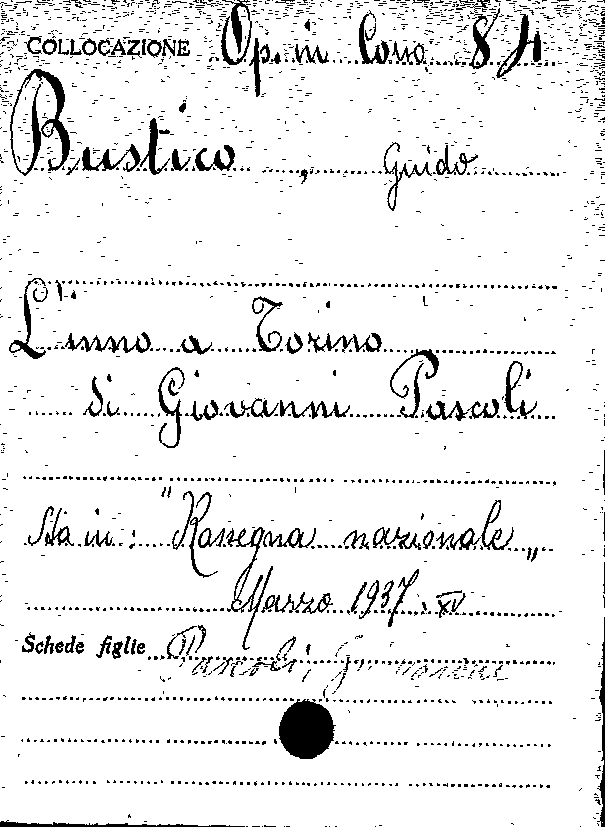 COLLOCAZIONE Op. in Cons. 84
Bustico, Guido
L'inno a Torino
di Giovanni Pascoli
Sta in: "Rassegna nazionale„
Marzo 1937. XV
Schede figlie Pascoli, Giovanni